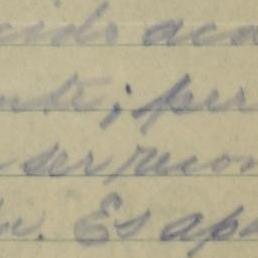 cido aca
nte; per
ser recon
Es apa